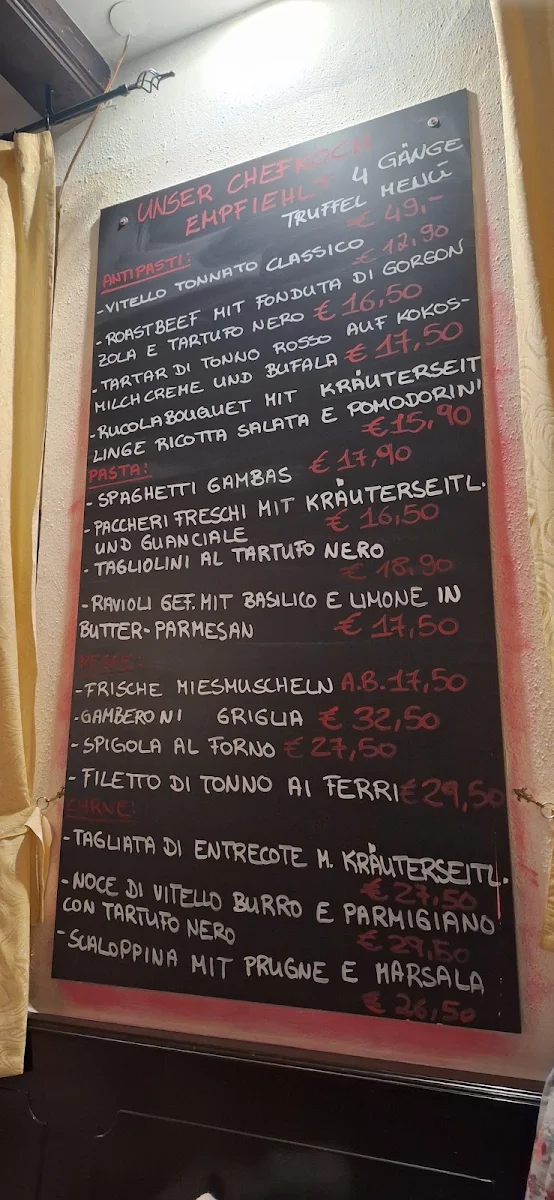 UNSER CHEFKOCH
EMPFIEHLT 4 GÄNGE
TRUFFEL MENÜ
€ 49,-
ANTIPASTI:
- VITELLO TONNATO CLASSICO € 12,90
- ROASTBEEF MIT FONDUTA DI GORGON
ZOLA E TARTUFO NERO € 16,50
- TARTAR DI TONNO ROSSO AUF KOKOS-
MILCHCREME UND BUFALA € 17,50
- RUCOLABOUGUET MIT KRÄUTERSEIT
LINGE RICOTTA SALATA E POMODORINI
€15,90
PASTA:
- SPAGHETTI GAMBAS € 17,90
- PACCHERI FRESCHI MIT KRÄUTERSEITL.
UND GUANCIALE € 16,50
- TAGLIOLINI AL TARTUFO NERO
€ 18,90
- RAVIOLI GEF. MIT BASILICO E LIMONE IN
BUTTER-PARMESAN € 17,50
PESCE:
- FRISCHE MIESMUSCHELN A.B. 17,50
- GAMBERONI GRIGLIA € 32,50
- SPIGOLA AL FORNO € 27,50
- FILETTO DI TONNO AI FERRI € 29,50
CARNE:
- TAGLIATA DI ENTRECOTE M. KRÄUTERSEITL.
€ 27,50
- NOCE DI VITELLO BURRO E PARMIGIANO
CON TARTUFO NERO € 29,50
- SCALOPPINA MIT PRUGNE E MARSALA
€ 26,50